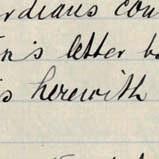 rdians con
This letter b
is herewith